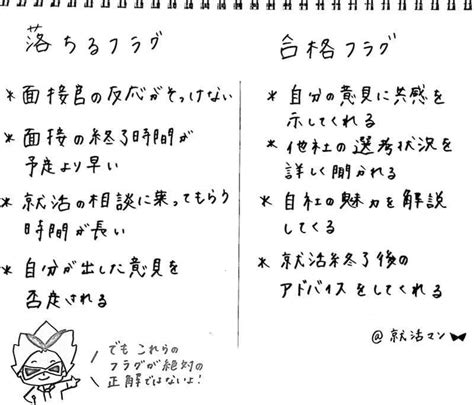 落ちるフラグ
* 面接官の反応がそっけない
* 面接の終了時間が
予定より早い
* 就活の相談に乗ってもらう
時間が長い
* 自分が出した意見を
否定される
でもこれらの
フラグが絶対の
正解ではないよ!
合格フラグ
* 自分の意見に共感を
示してくれる
* 他社の選考状況を
詳しく聞かれる
* 自社の魅力を解説
してくる
* 就活終了後の
アドバイスをしてくれる
@就活マン